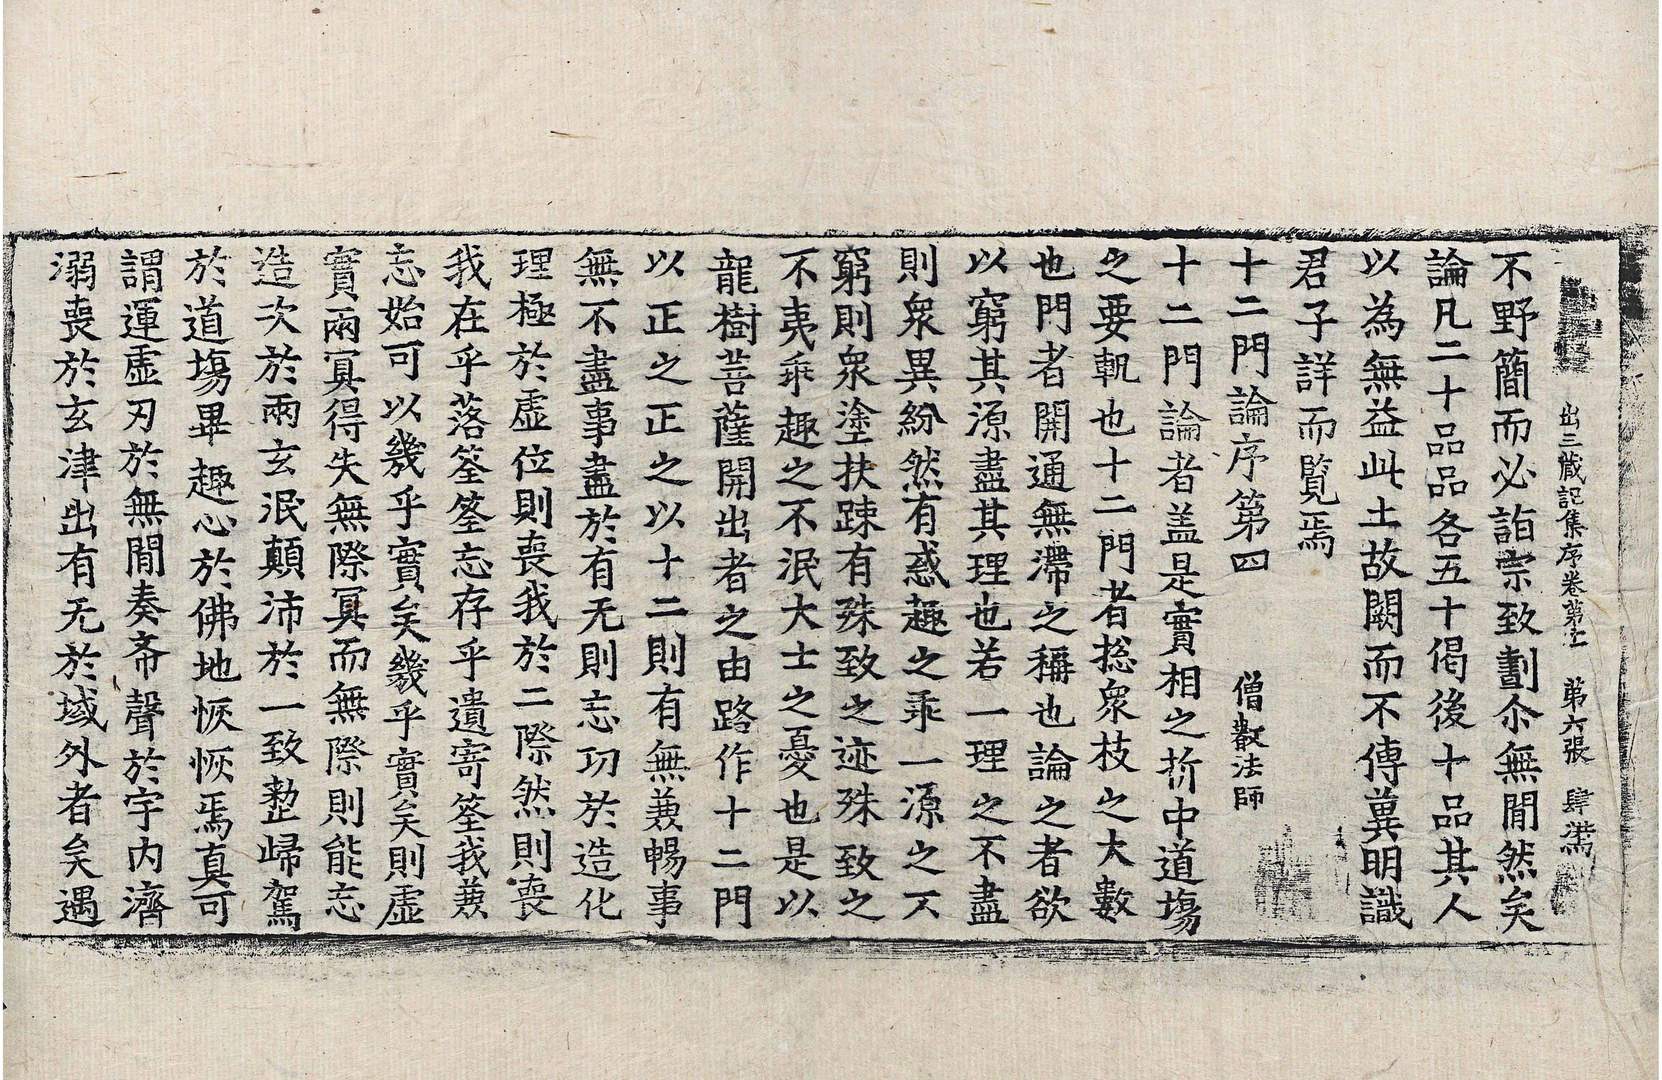 出三藏記集序卷第十一 第六張 肆
不野簡而必詣宗致劃尒無閒然矣
論凡二十品品各五十偈後十品其人
以為無益此土故闕而不傳冀明識
君子詳而覽焉
十二門論序第四 僧叡法師
十二門論者盖是實相之折中道塲
之要軌也十二門者捴衆枝之大數
也門者開通無滯之稱也論之者欲
以窮其源盡其理也若一理之不盡
則衆異紛然有惑趣之乖一源之不
窮則衆塗扶踈有殊致之迹殊致之
不夷乖趣之不泯大士之憂也是以
龍樹菩薩開出者之由路作十二門
以正之正之以十二則有無兼暢事
無不盡事盡於有无則忘功於造化
理極於虛位則喪我於二際然則喪
我在乎落筌筌忘存乎遺寄筌我兼
忘始可以幾乎實矣幾乎實矣則虛
實兩冥得失無際冥而無際則能忘
造次於兩玄泯顛沛於一致整歸駕
於道塲畢趣心於佛地恢恢焉真可
謂運虛刃於無閒奏希聲於宇內濟
溺喪於玄津出有无於域外者矣遇